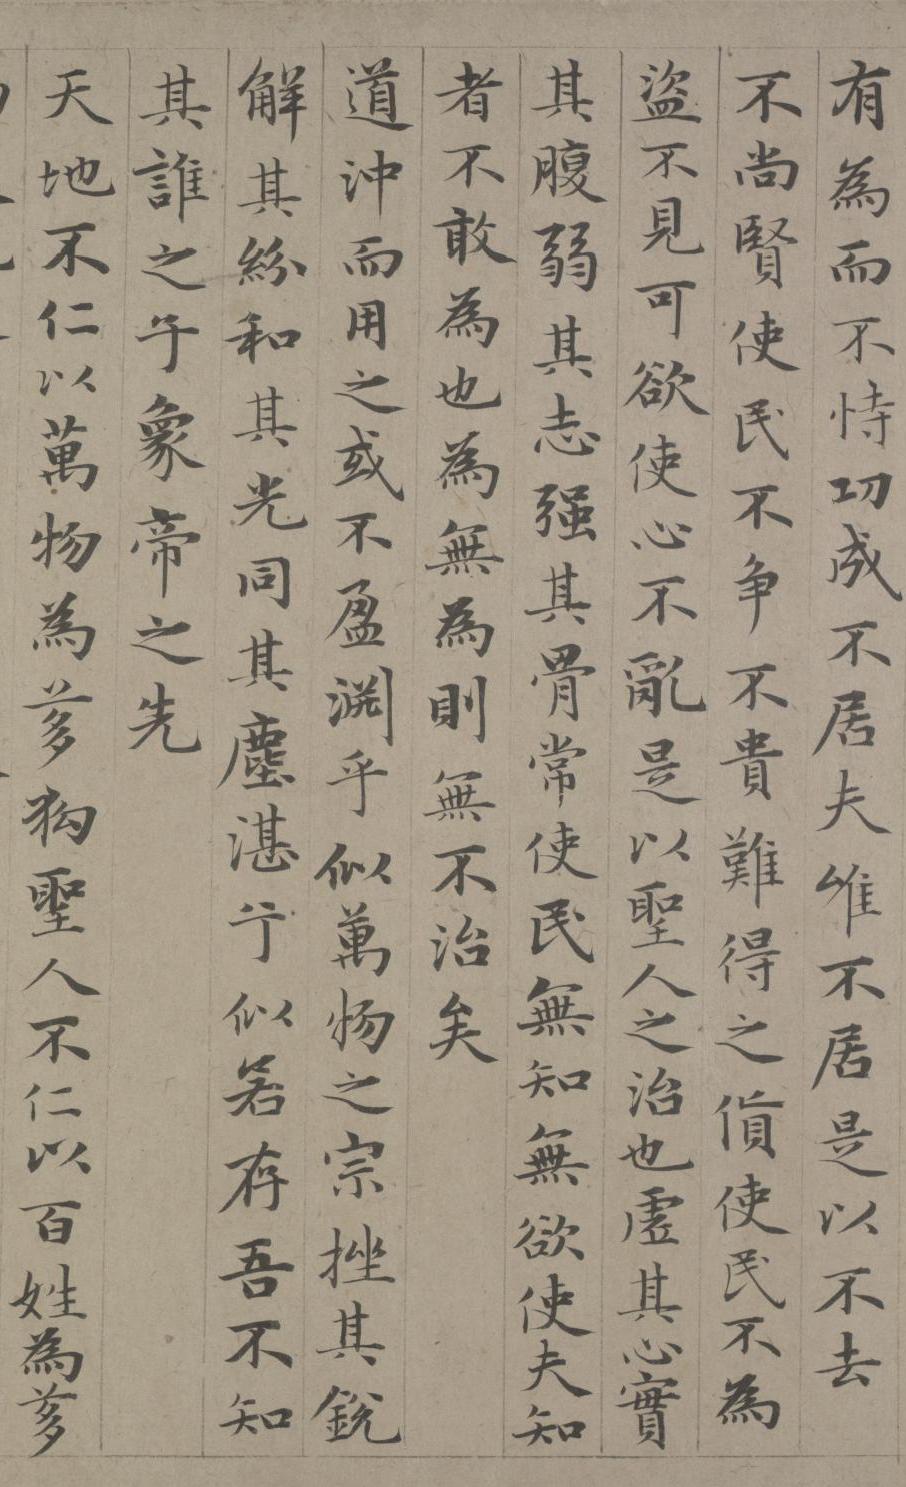 有為而不恃功成不居夫惟不居是以不去
不尚賢使民不争不貴難得之貨使民不為
盜不見可欲使心不亂是以聖人之治也虛其心實
其腹弱其志强其骨常使民無知無欲使夫知
者不敢為也為無為則無不治矣
道沖而用之或不盈淵乎似萬物之宗挫其銳
解其紛和其光同其塵湛兮似若存吾不知
其誰之子象帝之先
天地不仁以萬物為芻狗聖人不仁以百姓為芻